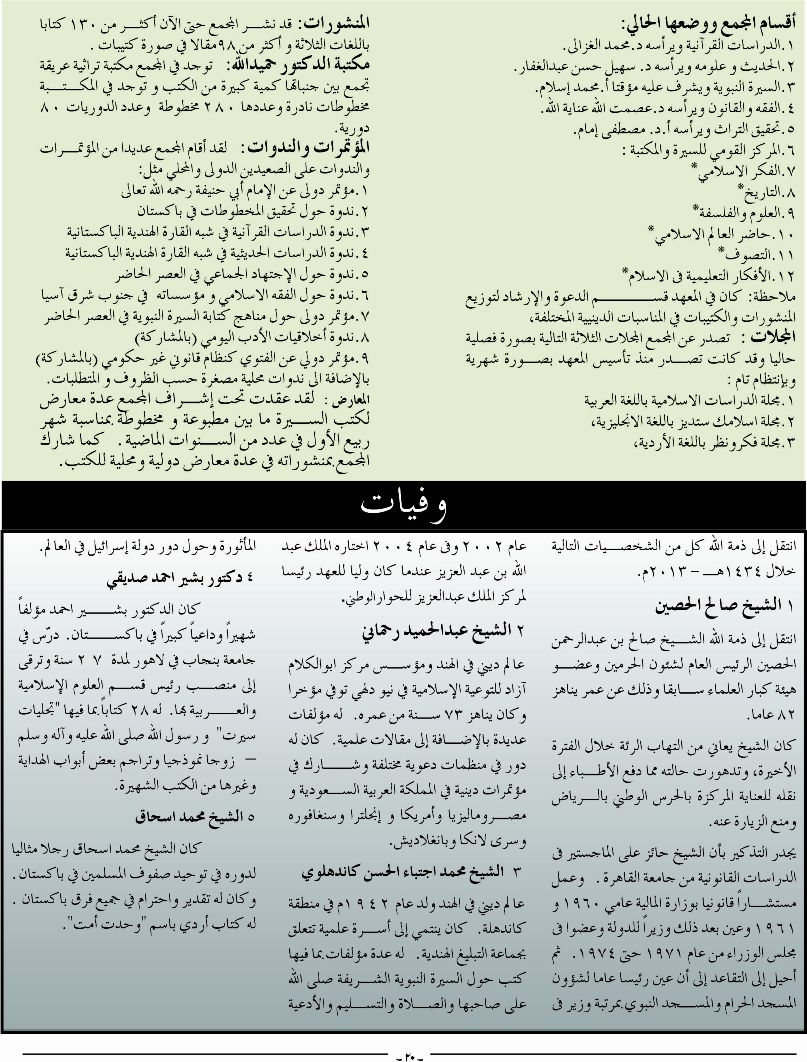 أقسام المجمع ووضعها الحالي:
١.الدراسات القرآنية ويرأسه د.محمد الغزالى.
٢.الحديث و علومه ويرأسه د. سهيل حسن عبدالغفار.
٣.السيرة النبوية ويشرف عليه مؤقتا أ.محمد إسلام.
٤.الفقه والقانون ويرأسه د.عصمت الله عناية الله.
٥.تحقيق التراث ويرأسه أ.د. مصطفى إمام.
٦.المركز القومي للسيرة والمكتبة :
٧.الفكر الاسلامي*
٨.التاريخ*
٩.العلوم والفلسفة*
١٠.حاضر العالم الاسلامي*
١١.التصوف*
١٢.الأفكار التعليمية فى الاسلام*
ملاحظة: كان في المعهد قسم الدعوة والإرشاد لتوزيع
المنشورات والكتيبات في المناسبات الدينيية المختلفة،
المجلات : تصدر عن المجمع المجلات الثلاثة التالية بصورة فصلية
حاليا وقد كانت تصدر منذ تأسيس المعهد بصورة شهرية
وبإنتظام تام :
١.مجلة الدراسات الاسلامية باللغة العربية
٢.مجلة اسلامك ستديز باللغة الانجليزية،
٣.مجلة فكرونظر باللغة الأردية،
المنشورات: قد نشر المجمع حتى الآن أكثر من ١٣٠ كتابا
باللغات الثلاثة و أكثر من ٩٨مقالا في صورة كتيبات .
مكتبة الدكتور حميدالله: توجد في المجمع مكتبة تراثية عريقة
تجمع بين جنباها كمية كبيرة من الكتب و توجد في المكتبة
مخطوطات نادرة وعددها ٢٨٠ مخطوطة وعدد الدوريات ٨٠
دورية.
المؤتمرات والندوات: لقد أقام المجمع عديدا من المؤتمرات
والندوات على الصعيدين الدولى والمحلي مثل:
١.مؤتمر دولى عن الإمام أبي حنيفة رحمه الله تعالى
٢.ندوة حول تحقيق المخطوطات في باكستان
٣.ندوة الدراسات القرآنية في شبه القارة الهندية الباكستانية
٤.ندوة الدراسات الحديثية في شبه القارة الهندية الباكستانية
٥.ندوة حول الإجتهاد الجماعي في العصر الحاضر
٦.ندوة حول الفقه الاسلامي و مؤسساته في جنوب شرق آسيا
٧.مؤتمر دولى حول مناهج كتابة السيرة النبوية في العصر الحاضر
٨.ندوة أخلاقيات الأدب اليومي (بالمشاركة)
٩.مؤتمر دولي عن الفتوي كنظام قانوني غير حكومي (بالمشاركة)
بالإضافة الى ندوات محلية مصغرة حسب الظروف و المتطلبات.
المعارض : لقد عقدت تحت إشراف المجمع عدة معارض
لكتب السيرة ما بين مطبوعة و مخطوطة بمناسبة شهر
ربيع الأول في عدد من السنوات الماضية . كما شارك
المجمع بمنشوراته في عدة معارض دولية و محلية للكتب.
وفيات
انتقل إلى ذمة الله كل من الشخصيات التالية
خلال ١٤٣٤هـ – ٢٠١٣م.
١ الشيخ صالح الحصين
انتقل إلى ذمة الله الشيخ صالح بن عبدالرحمن
الحصين الرئيس العام لشئون الحرمين وعضو
هيئة كبار العلماء سابقا وذلك عن عمر يناهز
٨٢ عاما.
كان الشيخ يعاني من التهاب الرئة خلال الفترة
الأخيرة، وتدهورت حالته مما دفع الأطباء إلى
نقله للعناية المركزة بالحرس الوطني بالرياض
ومنع الزيارة عنه.
يجدر التذكير بأن الشيخ حائز على الماجستير فى
الدراسات القانونية من جامعة القاهرة . وعمل
مستشاراً قانونيا بوزارة المالية عامي ١٩٦٠ و
١٩٦١ وعين بعد ذلك وزيراً للدولة وعضوا فى
مجلس الوزراء من عام ١٩٧١ حتى ١٩٧٤. ثم
أحيل إلى التقاعد إلى أن عين رئيسا عاما لشؤون
المسجد الحرام والمسجد النبوي بمرتبة وزير فى
عام ٢٠٠٢ وفى عام ٢٠٠٤ اختاره الملك عبد
الله بن عبد العزيز عندما كان وليا للعهد رئيسا
لمركز الملك عبدالعزيز للحوارالوطني.
٢ الشيخ عبدالحميد رحماني
عالم ديني في الهند ومؤسس مركز ابوالكلام
آزاد للتوعية الإسلامية في نيو دلهي توفي مؤخرا
وكان يناهز ٧٣ سنة من عمره. له مؤلفات
عديدة بالإضافة إلى مقالات علمية. كان له
دور في منظمات دعوية مختلفة وشارك في
مؤتمرات دينية في المملكة العربية السعودية و
مصروماليزيا وأمريكا و إنجلترا وسنغافوره
وسرى لانكا وبانغلاديش.
٣ الشيخ محمد اجتباء الحسن كاندهلوي
عالم ديني في الهند ولد عام ١٩٤٢م في منطقة
كاندهلة. كان ينتمي إلى أسرة علمية تتعلق
بجماعة التبليغ الهندية. له عدة مؤلفات بما فيها
كتب حول السيرة النبوية الشريفة صلى الله
على صاحبها والصلاة والتسليم والأدعية
المأثورة وحول دور دولة إسرائيل في العالم.
٤ دكتور بشير احمد صديقي
كان الدكتور بشير احمد مؤلفاً
شهيراً وداعياً كبيراً في باكستان. درّس في
جامعة بنجاب في لاهور لمدة ٢٧ سنة وترقى
إلى منصب رئيس قسم العلوم الإسلامية
والعربية بها. له ٢٨ كتاباً بما فيها "تجليات
سيرت" و رسول الله صلى الله عليه وآله وسلم
– زوجا نموذجيا وتراجم بعض أبواب الهداية
وغيرها من الكتب الشهيرة.
٥ الشيخ محمد اسحاق
كان الشيخ محمد اسحاق رجلا مثاليا
لدوره في توحيد صفوف المسلمين في باكستان.
وكان له تقدير واحترام في جميع فرق باكستان .
له كتاب أردي باسم "وحدت أمت".
- ٢٠ -